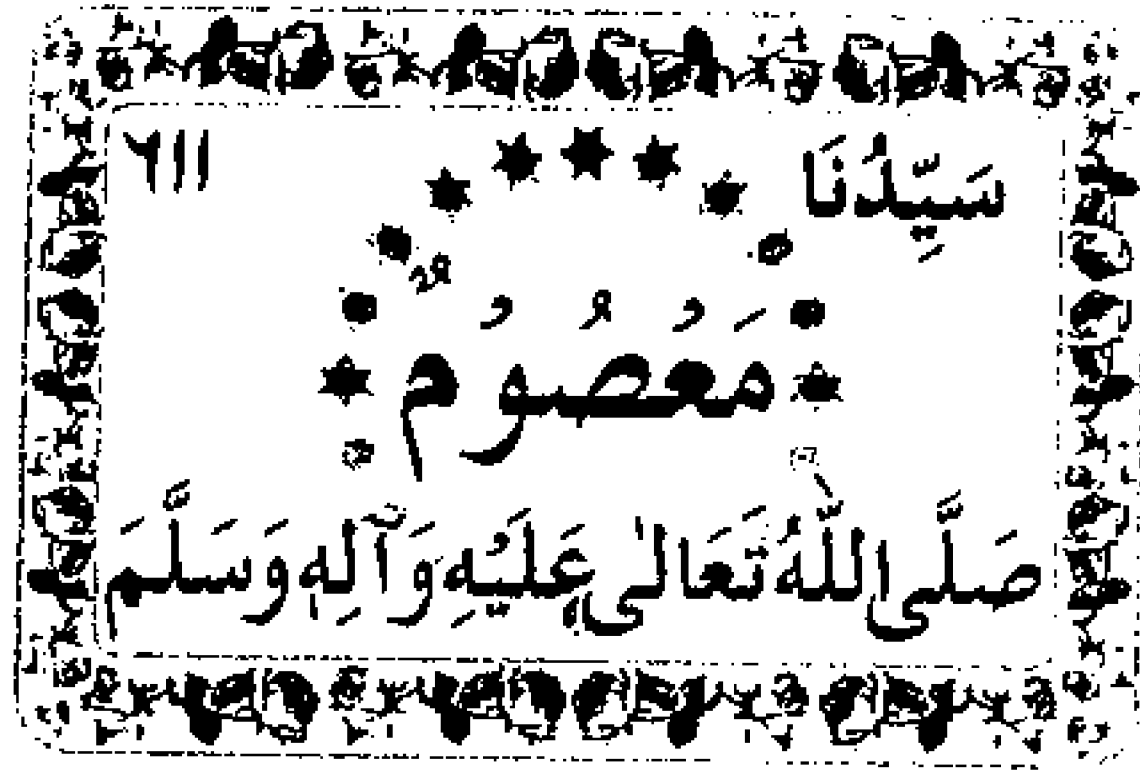 سَيِّدُنَا ٦١١
مَعْصُوْمٌ
صَلَّى اللّٰهُ تَعَالٰى عَلَيْهِ وَآلِهٖ وَسَلَّمَ